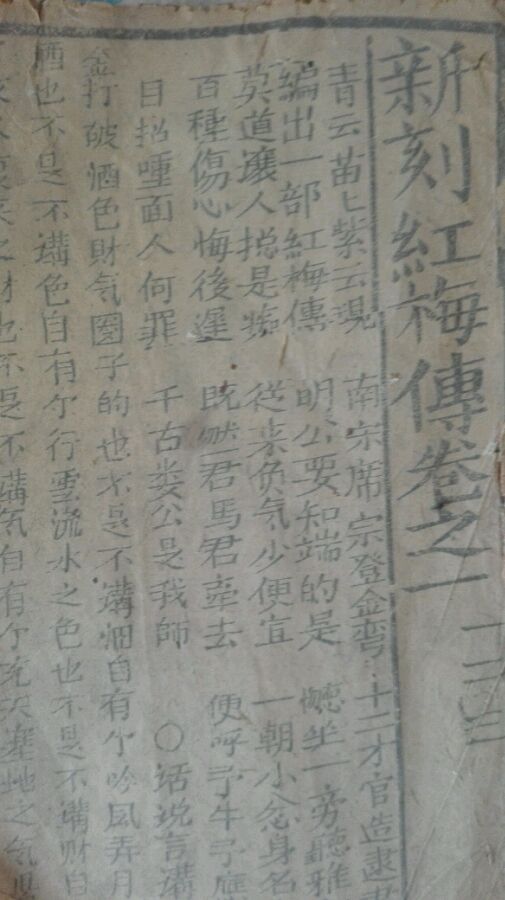 新刻紅梅傳卷之一 一二三
青云苗匕紫云現 南宗席宗登金弯 十二才官造逮
編出一部紅梅傳 明公要知端的是 聽坐一旁聽雅
莫道讓人捴是痴 從来负气少便宜 一朝小忿身名
百種傷心悔後遲 既然一君馬君牽去 便呼子牛子應
目招唾面人何罪 千古娄公是我師 〇话说言講
金打破酒色財气圈子的也不是不講酒自有个吟風弄月
酒也不是不講色自有个行雲流水之色也不是不講财自
之财也不是不講气自有个充天塞地之气